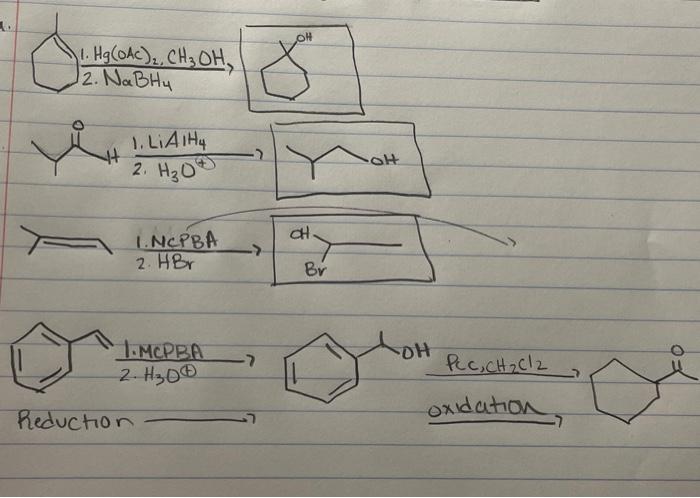 1.
1. Hg(OAc)₂, CH₃OH
2. NaBH₄
OH
O
H
1. LiAlH₄
2. H₃O⊕
OH
1. MCPBA
2. HBr
OH
Br
1. MCPBA
2. H₃O⊕
OH
PCC, CH₂Cl₂
O
Reduction
oxidation